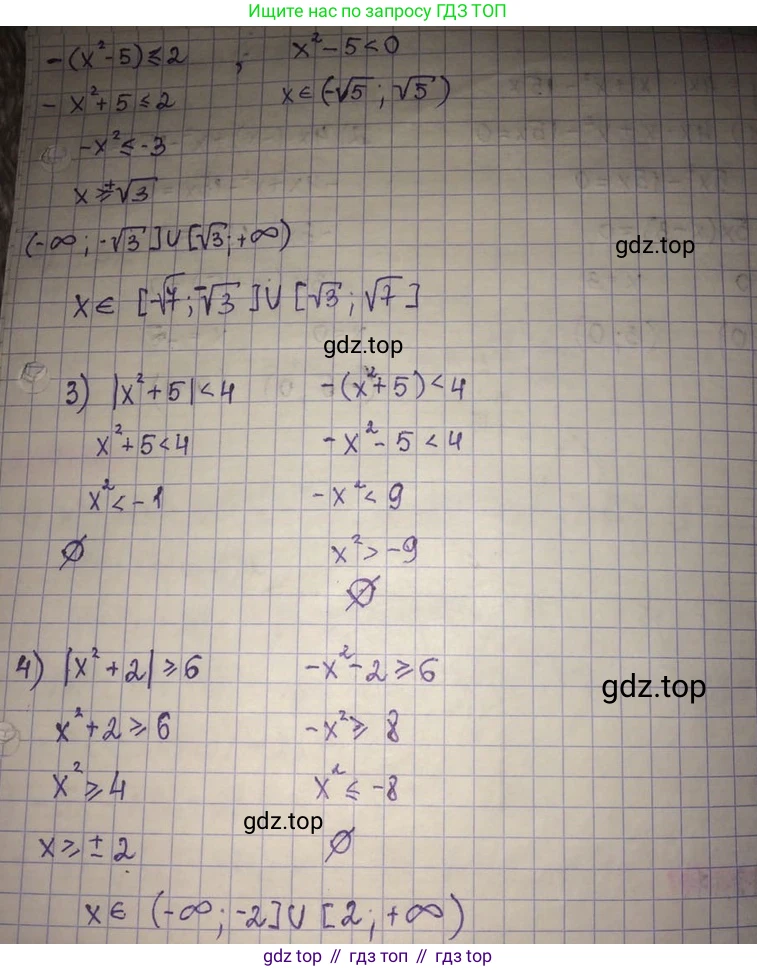 Ищите нас по запросу ГДЗ ТОП
-(x²-5) ≤ 2 ; x² - 5 < 0
- x² + 5 ≤ 2 x ∈ (-√5 ; √5)
-x² ≤ -3
x ≥ ±√3
(-∞ ; -√3] ∪ [√3 ; +∞)
gdz.top
x ∈ [-√7 ; -√3] ∪ [√3 ; √7]
gdz.top
3) |x² + 5| < 4 -(x² + 5) < 4
x² + 5 < 4 -x² - 5 < 4
x² < -1 -x² < 9
∅ x² > -9
∅
4) |x² + 2| ≥ 6 -x² - 2 ≥ 6
gdz.top
x² + 2 ≥ 6 -x² ≥ 8
x² ≥ 4 x² ≤ -8
gdz.top
x ≥ ± 2 ∅
x ∈ (-∞ ; -2] ∪ [2 ; +∞)
gdz top // гдз топ // gdz top